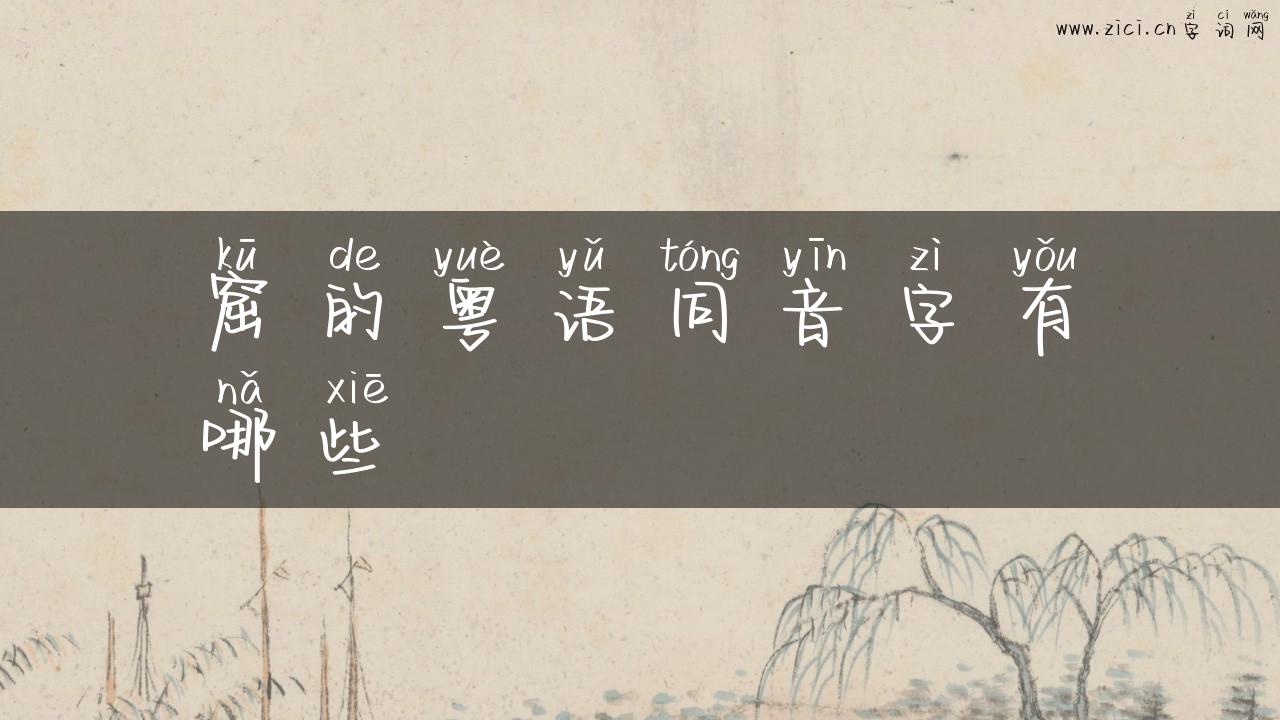 zì cí wǎng
www.zici.cn 字词网
kū de yuè yǔ tóng yīn zì yǒu
窟的粤语同音字有
nǎ xiē
哪些